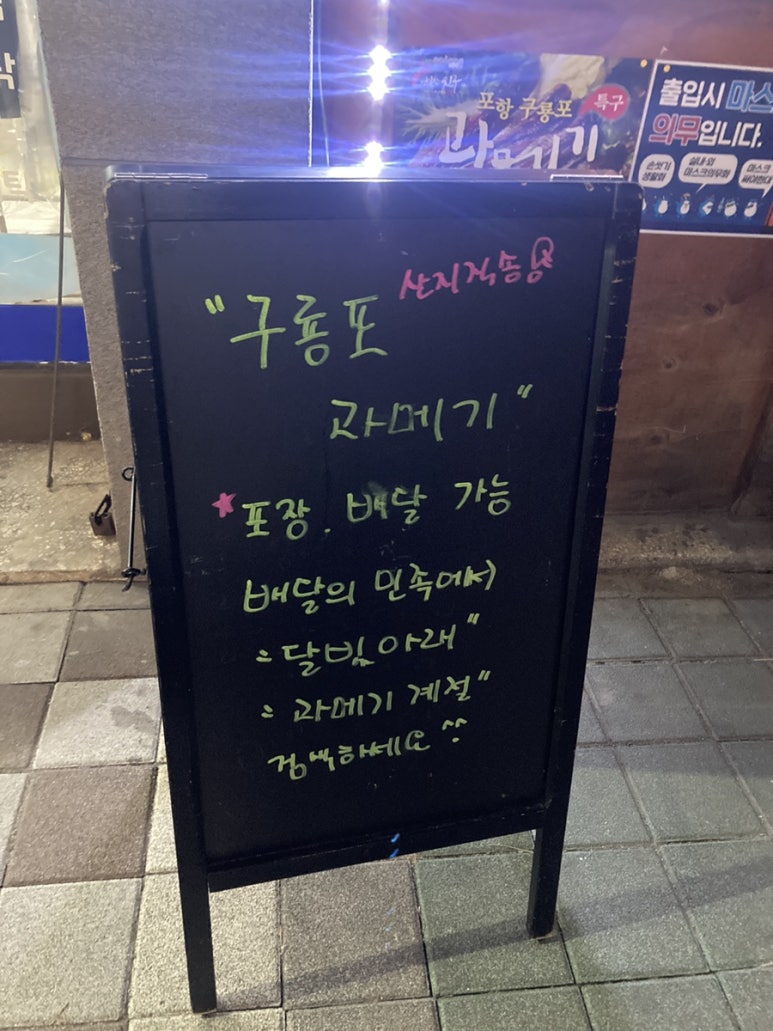 포항 구룡포
특구
과메기
출입시 마스
의무입니다.
손씻기
생활화
실내·외
마스크의무화
산지직송
"구룡포
과메기"
*포장. 배달 가능
배달의 민족에서
"달빛아래"
"과메기 계절"
검색하세요 ^^